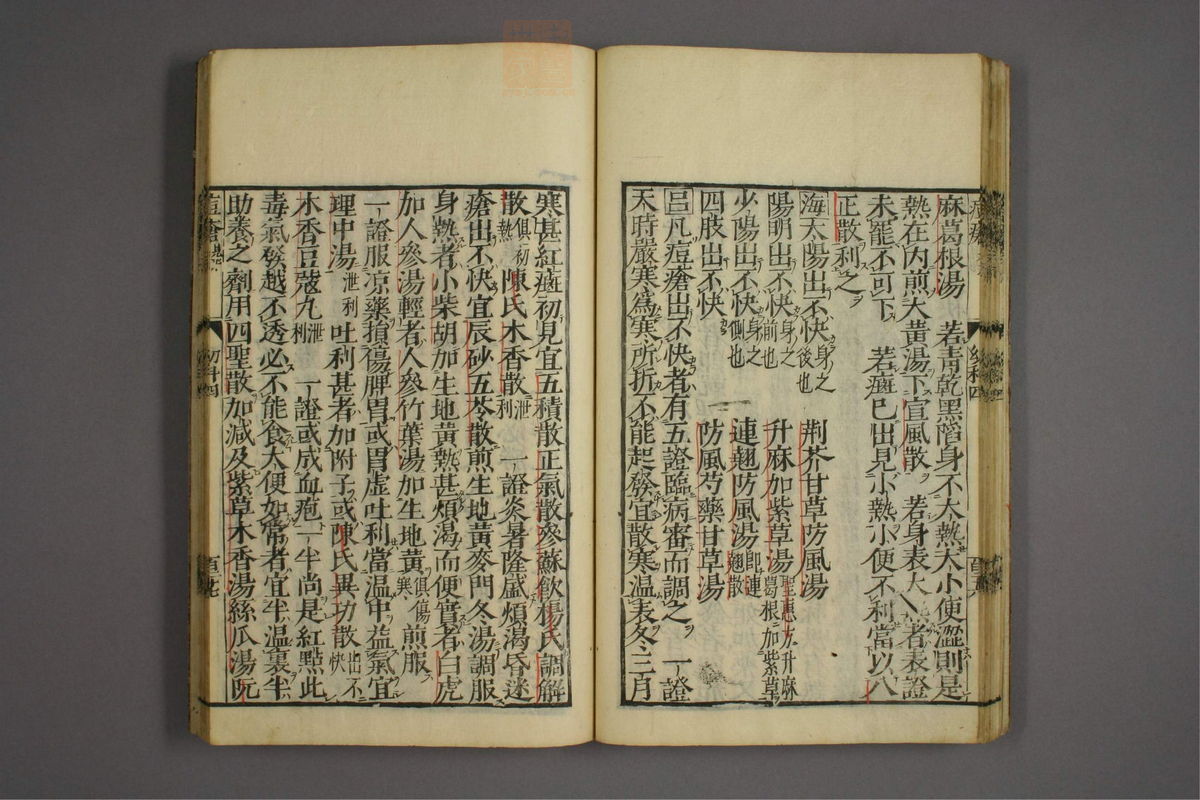 麻葛根湯　若靑乾黑陷身不大熱大小便澁則是
熱在内煎大黃湯下宣風散　若身表大熱者表證
未罷不可下　若瘢已出見小熱小便不利當以八
正散利之
海太陽出不快身之後也　荆芥甘草防風湯
陽明出不快身之前也　升麻加紫草湯聖惠方升麻葛根加紫草
少陽出不快身之側也　連翹防風湯卽連翹散
四肢出不快　防風芍藥甘草湯
呂凡痘瘡出不快者有五證臨病審而調之　一證
天時嚴寒爲寒所折不能起發宜散寒溫表冬三月
寒甚紅瘢初見宜五積散正氣散參蘇飮楊氏調解
散俱初熱陳氏木香散泄利　一證炎暑隆盛煩渴昏迷
瘡出不快宜辰砂五苓散煎生地黃麥門冬湯調服
身熱者小柴胡加生地黃熱甚煩渴而便實者白虎
加人參湯輕者人參竹葉湯加生地黃俱傷寒煎服
一證服凉藥損傷脾胃或胃虛吐利當溫中益氣宜
理中湯泄利吐利甚者加附子或陳氏異功散出不快
木香豆蔻丸泄利　一證或成血疱一半尚是紅點此
毒氣發越不透必不能食大便如常者宜半溫裏半
助養之劑用四聖散加減及紫草木香湯絲瓜湯阮